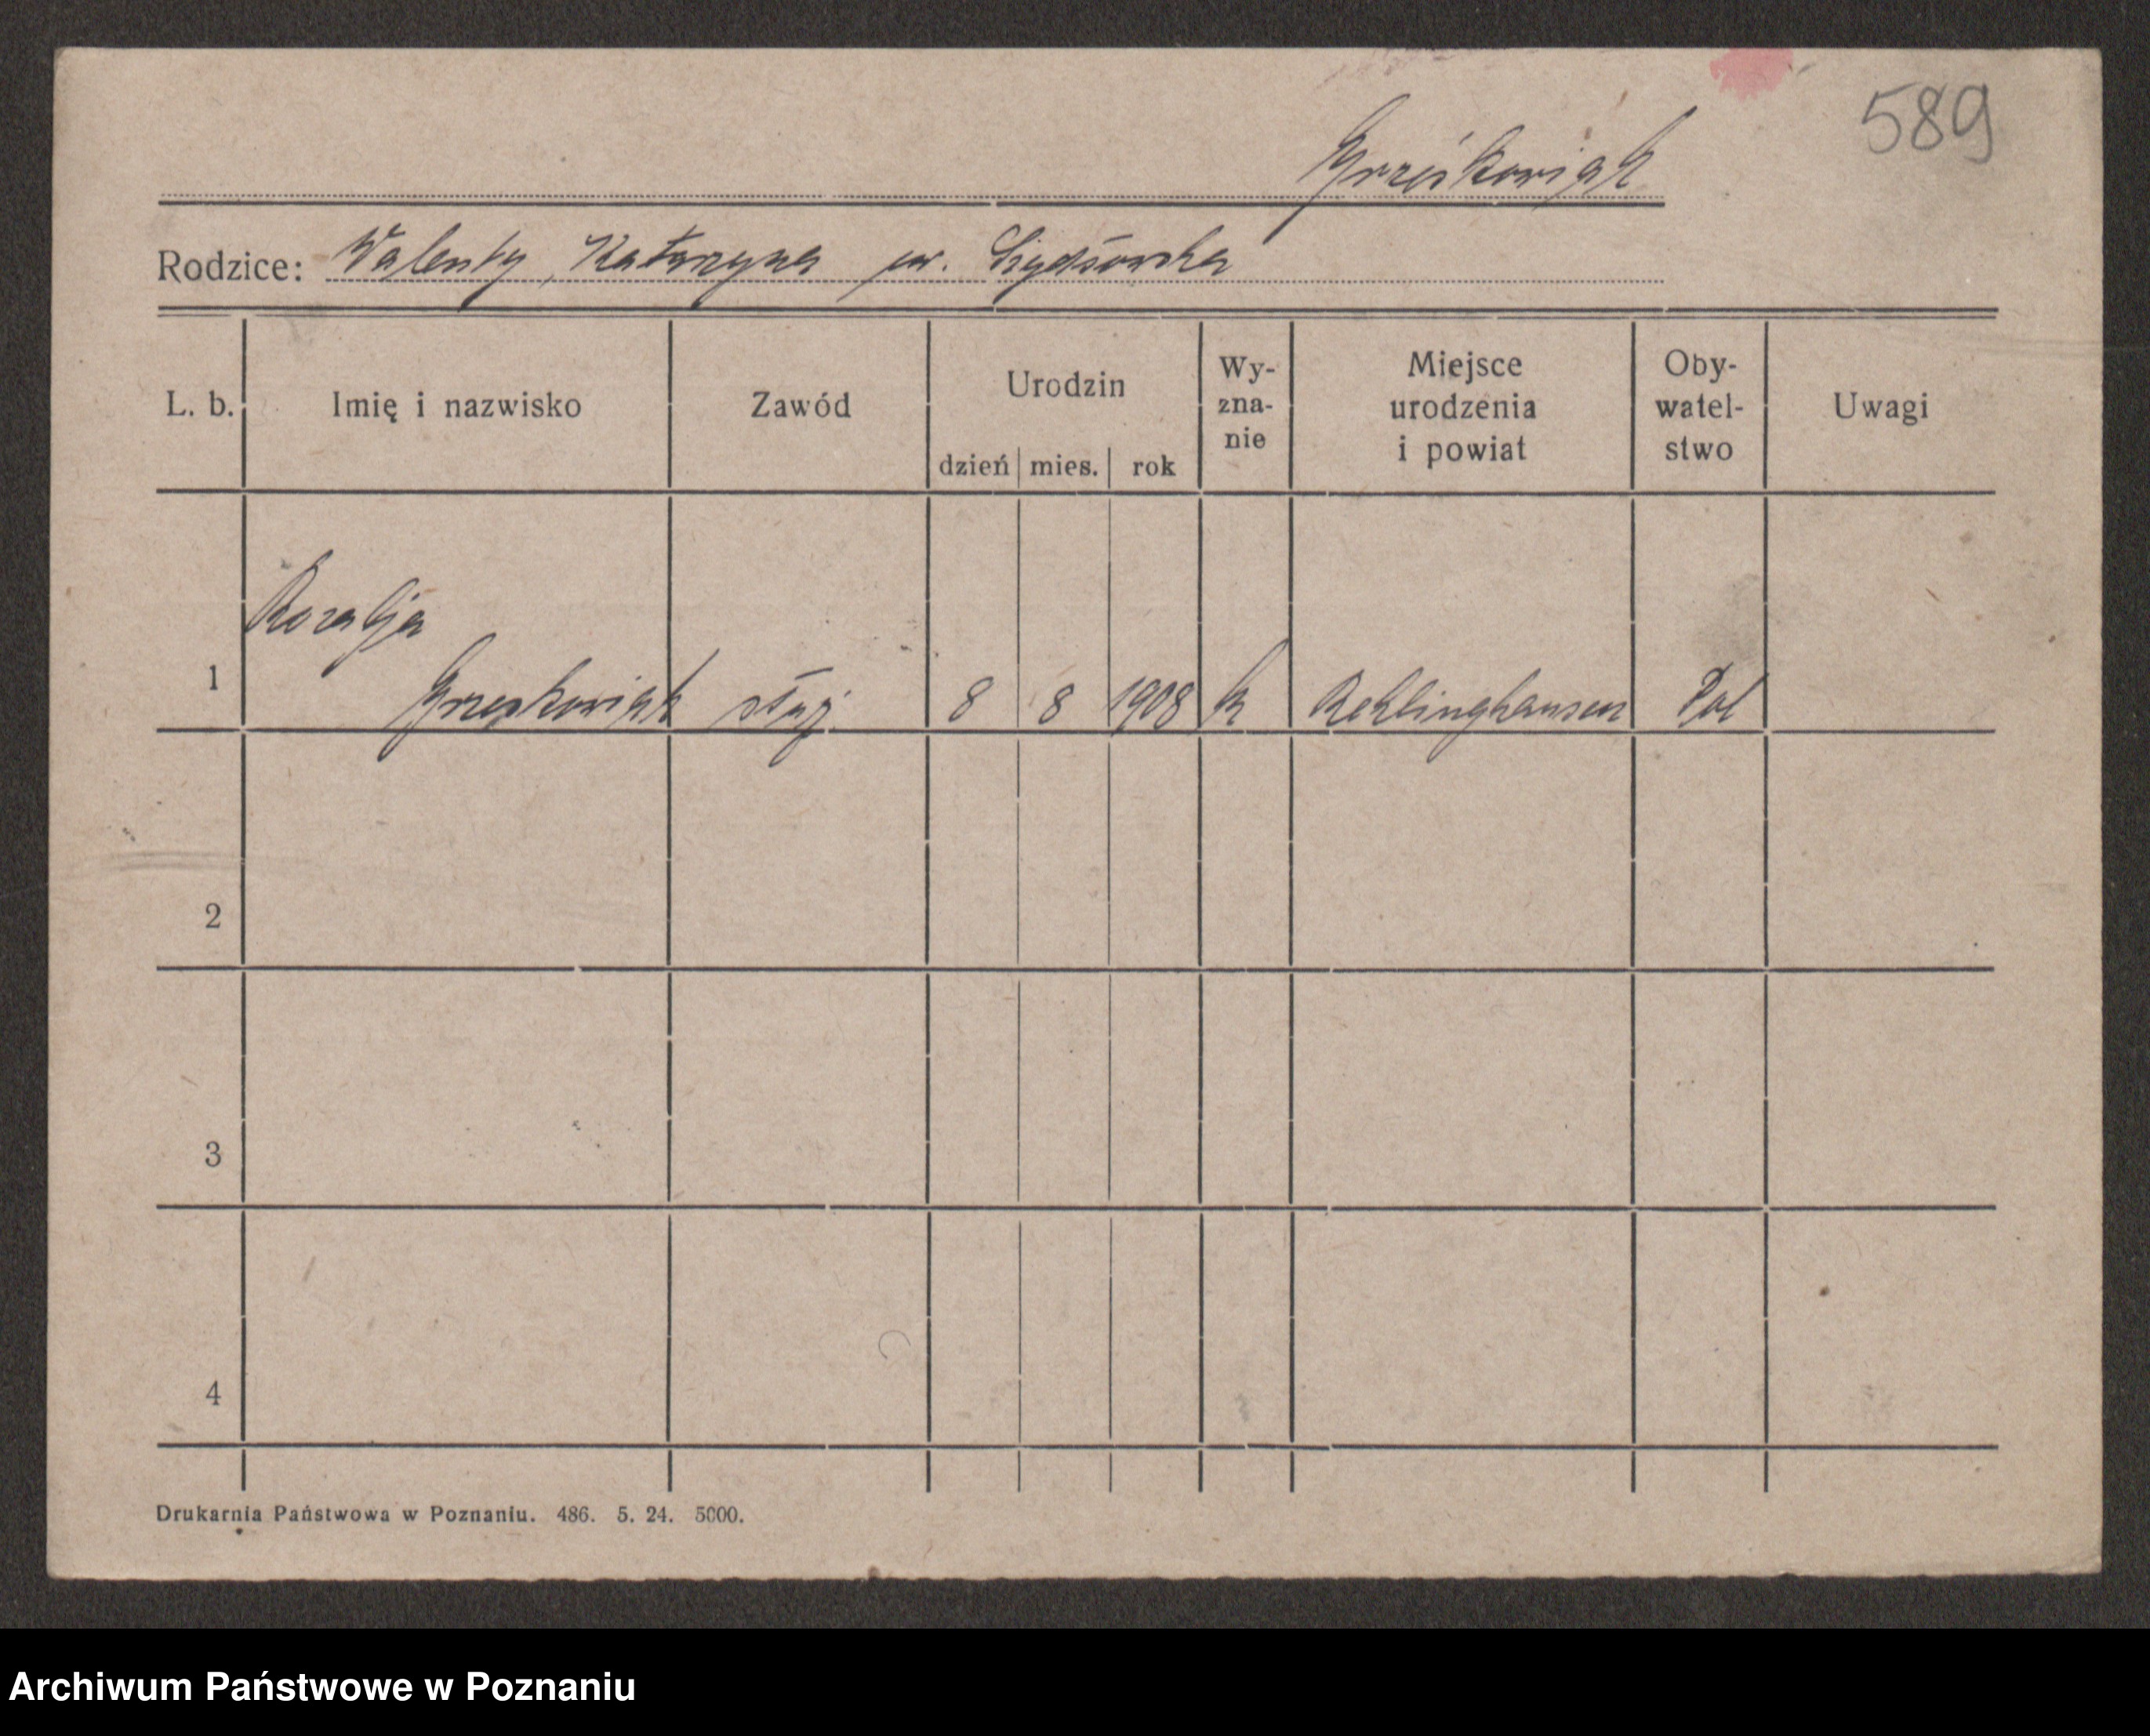 589
Grześkowiak
Rodzice: Walenty, Katarzyna ur.
L. b. Imię i nazwisko Zawód Urodzin dzień mies. rok Wy-zna-nie Miejsce urodzenia i powiat Oby-watel-stwo Uwagi
Rozalja
1 Grzeskowiak służ. 8 8 1908 k Reklinghausen Pol
2
3
4
Drukarnia Państwowa w Poznaniu. 486. 5. 24. 5000.
Archiwum Państwowe w Poznaniu